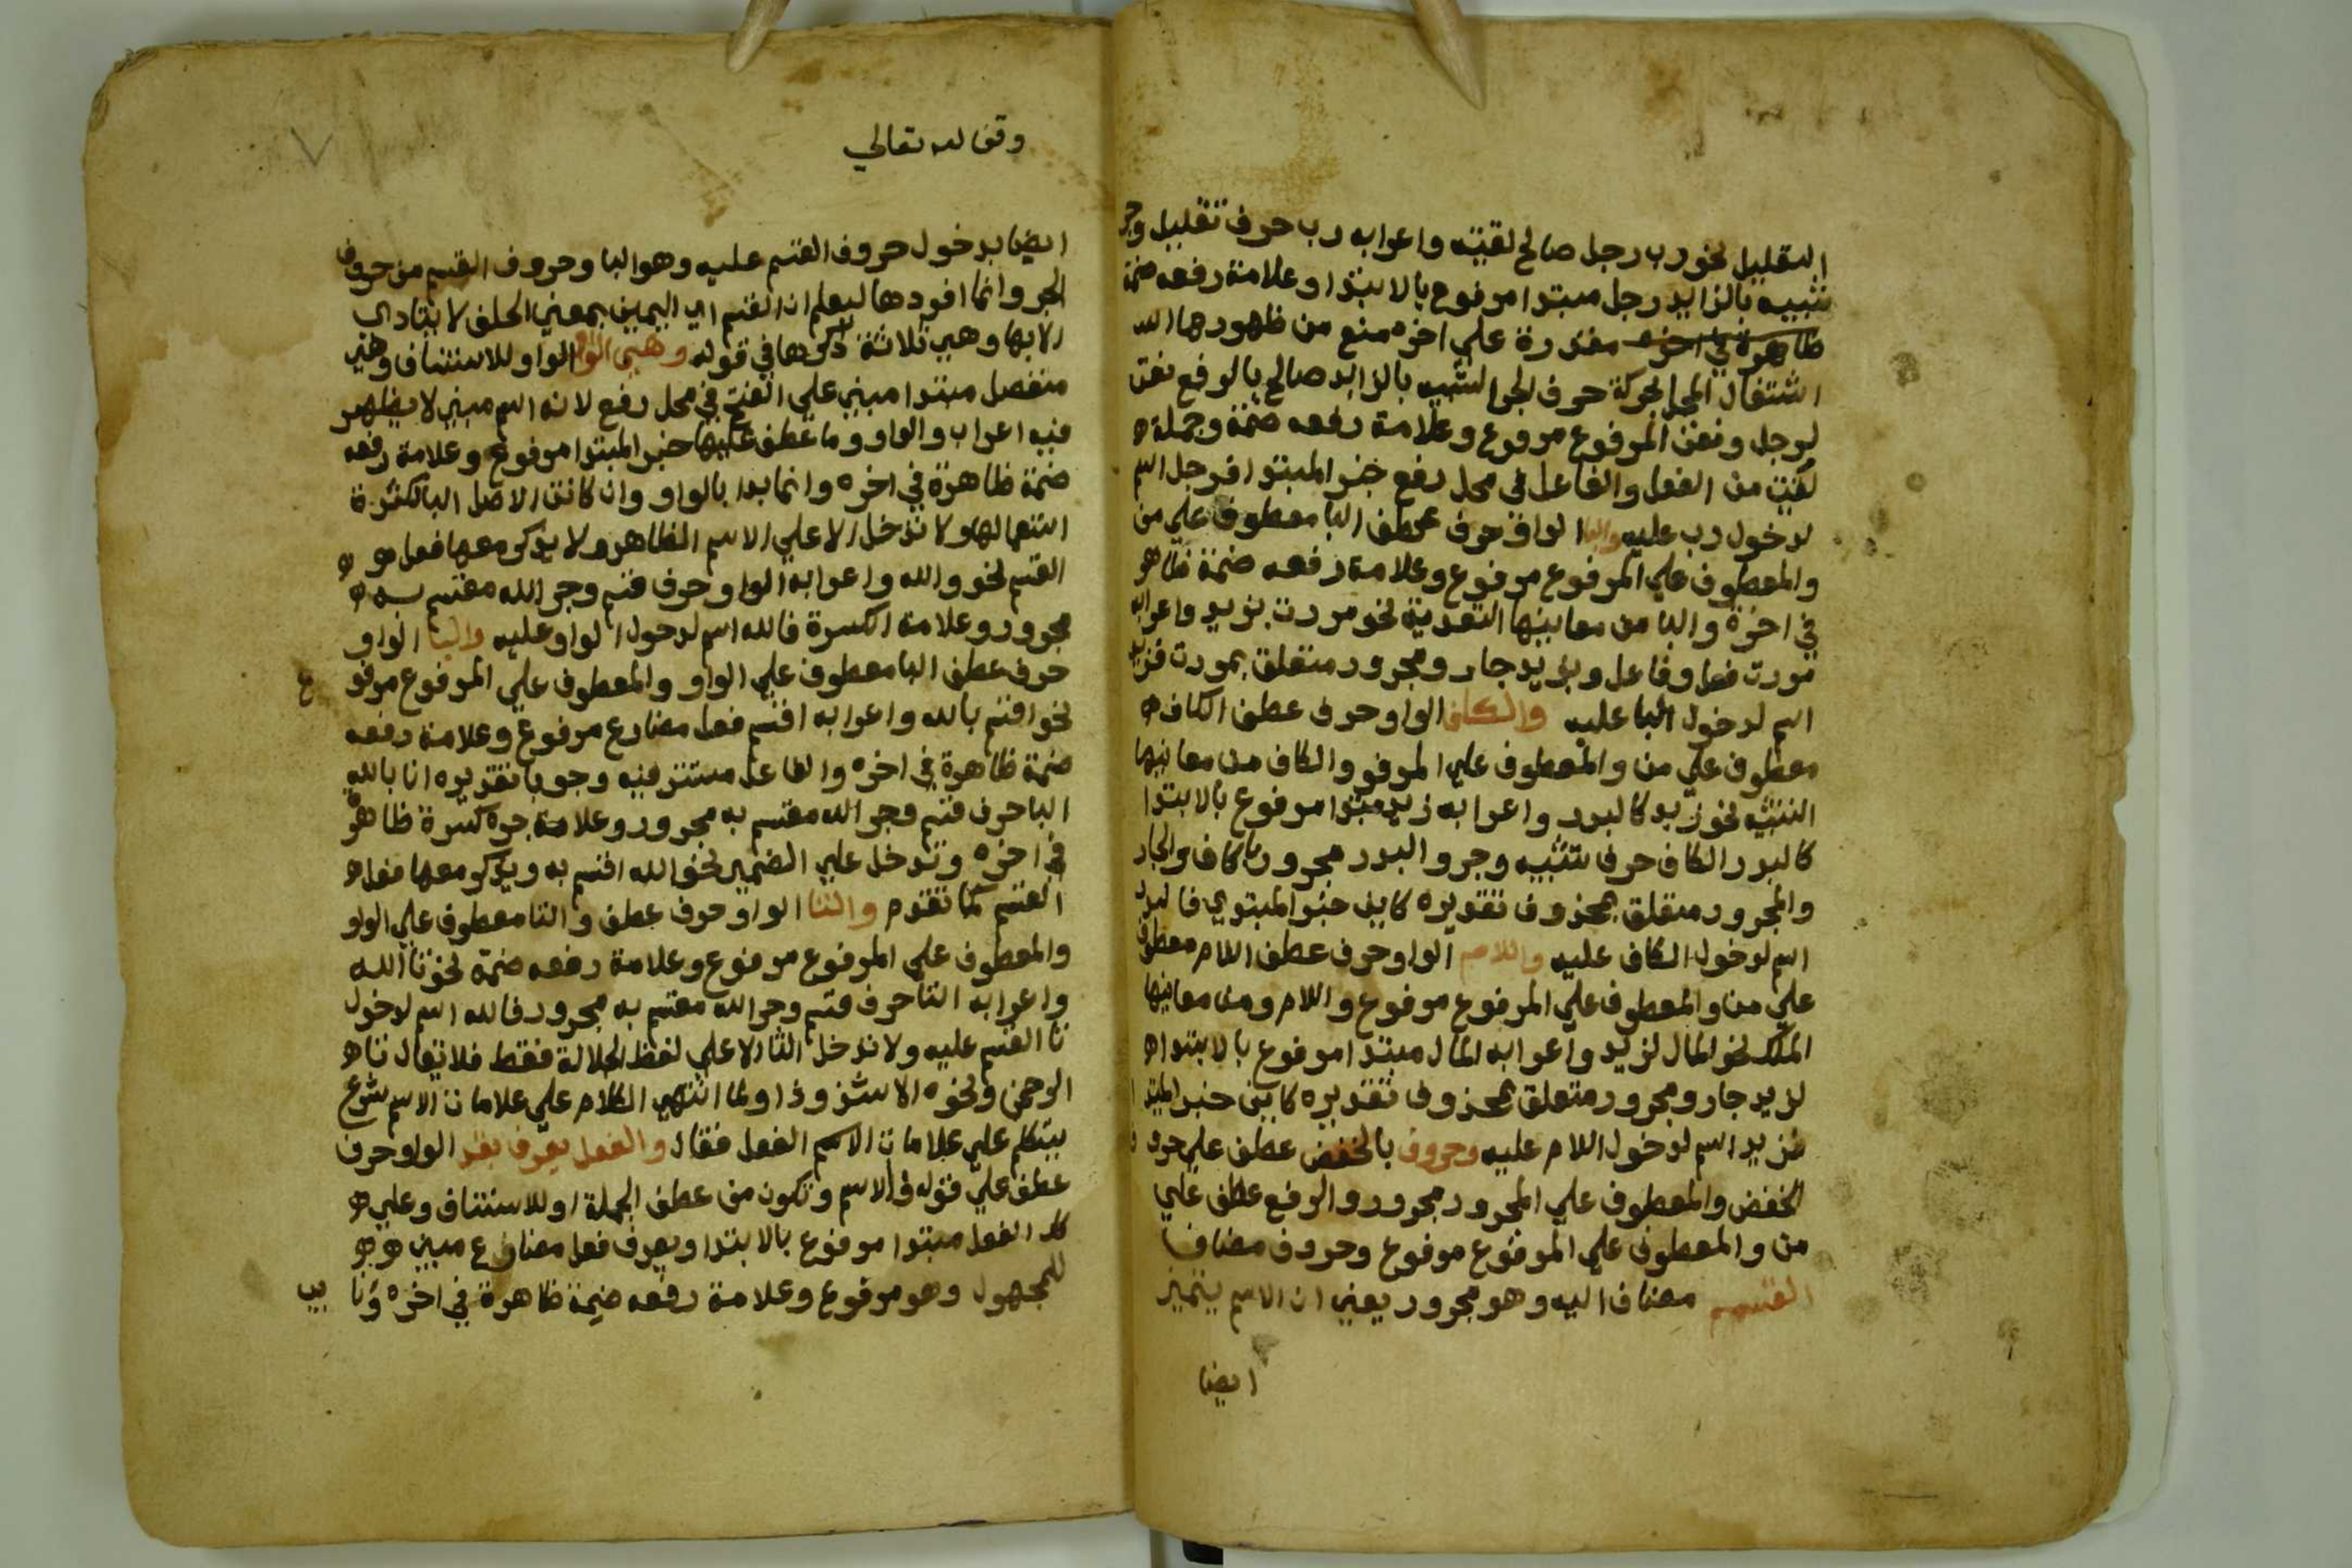 التقليل نحو رب رجل صالح لقيته واعرابه رب حرف تقليل وجر
شبيه بالزايد رجل مبتدا مرفوع بالابتدا وعلامة رفعه ضمة
ظاهرة في اخره مقدرة علي اخره منع من ظهورها
اشتغال المحل بحركة حرف الجر الشبيه بالزايد صالح بالرفع نعت
لرجل ونعت المرفوع مرفوع وعلامة رفعه ضمة وجملة
لقيت من الفعل والفاعل في محل رفع خبر المبتدا فرجل اسم
لدخول رب عليه والبا الواو حرف عطف البا معطوف علي من
والمعطوف علي المرفوع مرفوع وعلامة رفعه ضمة ظاهر
في اخره والبا من معانيها التعدية نحو مررت بزيد واعرابه
مررت فعل وفاعل وبزيد جار ومجرور متعلق بمررت فزيد
اسم لدخول البا عليه والكاف الواو حرف عطف الكاف
معطوف علي من والمعطوف علي المرفو والكاف من معانيها
التشبيه نحو زيد كالبدر واعرابه زيد مبتدا مرفوع بالابتدا
كالبدر الكاف حرف تشبيه وجر والبدر مجرور بالكاف والجار
والمجرور متعلق بمحذوف تقديره كاين خبر المبتدي فالبدر
اسم لدخول الكاف عليه واللام الواو حرف عطف اللام معطوف
علي من والمعطوف علي المرفوع مرفوع واللام ومن معانيها
الملك نحو المال لزيد واعرابه المال مبتدا مرفوع بالابتدا
لزيد جار ومجرور متعلق بمحذوف تقديره كاين خبر المبتدا
فزيد اسم لدخول اللام عليه وحروف بالخفض عطف علي حرو
الخفض والمعطوف علي المجرور مجرور والرفع عطف علي
من والمعطوف علي المرفوع مرفوع وحروف مضاف
القسم مضاف اليه وهو مجرور يعني ان الاسم يتميز
ايضا
وقف لله تعالي
٧
ايضا بدخول حروف القسم عليه وهو البا وحروف القسم من حروف
الجر وانما افردها ليعلم ان القسم اي اليمين بمعني الحلف لا يتادي
الا بها وهي ثلاثة ذكرها في قوله وهي الواو الواو للاستئناف وهي
منفصل مبتدا مبني علي الفتح في محل رفع لانه اسم مبني لا يظهر
فيه اعراب والواو وما عطف عليها خبر المبتدا مرفوع وعلامة رفعه
ضمة ظاهرة في اخره وانما بدا بالواو وان كانت الاصل البا لكثرة
استعمالها ولا تدخل الا علي الاسم الظاهر ولا يذكر معها فعل
القسم نحو والله واعرابه الواو حرف قسم وجر الله مقسم به
مجرور وعلامة الكسرة فالله اسم لدخول الواو عليه والبا الواو
حرف عطف البا معطوف علي الواو والمعطوف علي المرفوع مرفو ع
نحو اقسم بالله واعرابه اقسم فعل مضارع مرفوع وعلامة رفعه
ضمة ظاهرة في اخره والفاعل مستتر فيه وجوبا تقديره انا بالله
البا حرف قسم وجر الله مقسم به مجرور وعلامة جره كسرة ظاهرة
في اخره وتدخل علي الضمير نحو الله اقسم به ويذكر معها فعل
القسم كما تقدم والتا الواو حرف عطف والتا معطوف علي الواو
والمعطوف علي المرفوع مرفوع وعلامة رفعه ضمة نحو تا الله
واعرابه التا حرف قسم وجر الله مقسم به مجرور فالله اسم لدخول
تا القسم عليه ولا تدخل التا الا علي لفظ الجلالة فقط فلا يقال تا
الرحمن ونحوه الا شذوذا ولما انتهي الكلام علي علامات الاسم شرع
يتكلم علي علامات الاسم الفعل فقال والفعل يعرف بقد الواو حرف
عطف علي قوله فالاسم وتكون من عطف الجملة او للاستئناف وعلي
كل الفعل مبتدا مرفوع بالابتدا ويعرف فعل مضارع مبني
للمجهول وهو مرفوع وعلامة رفعه ضمة ظاهرة في اخره ونا يب